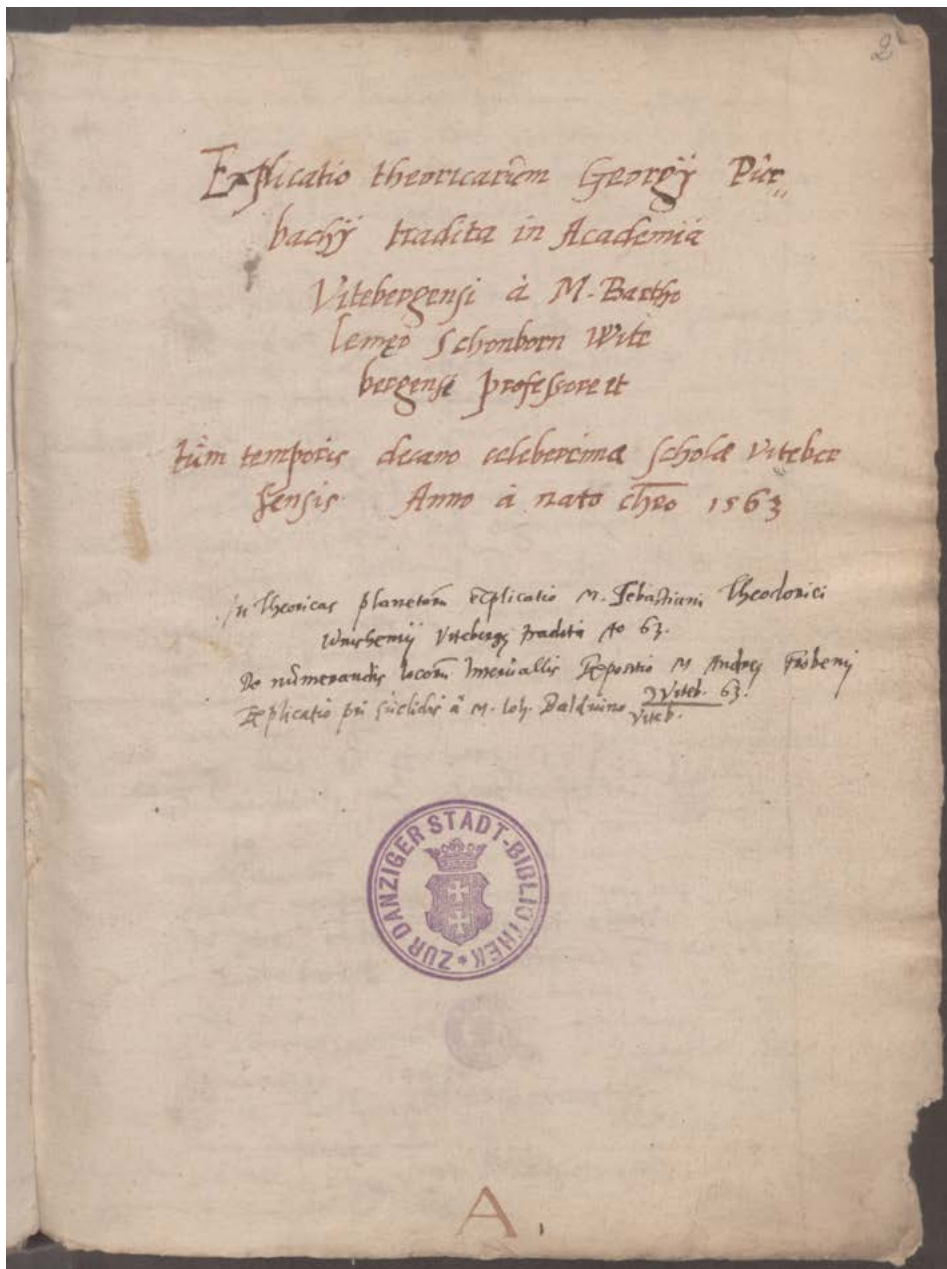 2
Explicatio theoricarum Georgÿ Pur„
bachÿ tradita in Academia
Vitebergensi à M. Bartho
lemęo Schonborn Wite
bergensi professore et
tùm temporis decano celeberrimæ scholæ Viteber
gensis. Anno à nato chro 1563
In Theoricas planetarū explicatio M. Sebastiani Theodorici
Winshemij Vitebergę tradita Ao 63.
De numerandis locorū Interuallis Expositio M Andreę
Explicatio pri Euclidis â M. Joh. Balduino Viteb. 63.
Viteb.
ZUR DANZIGER STADT-BIBLIOTHEK *
A